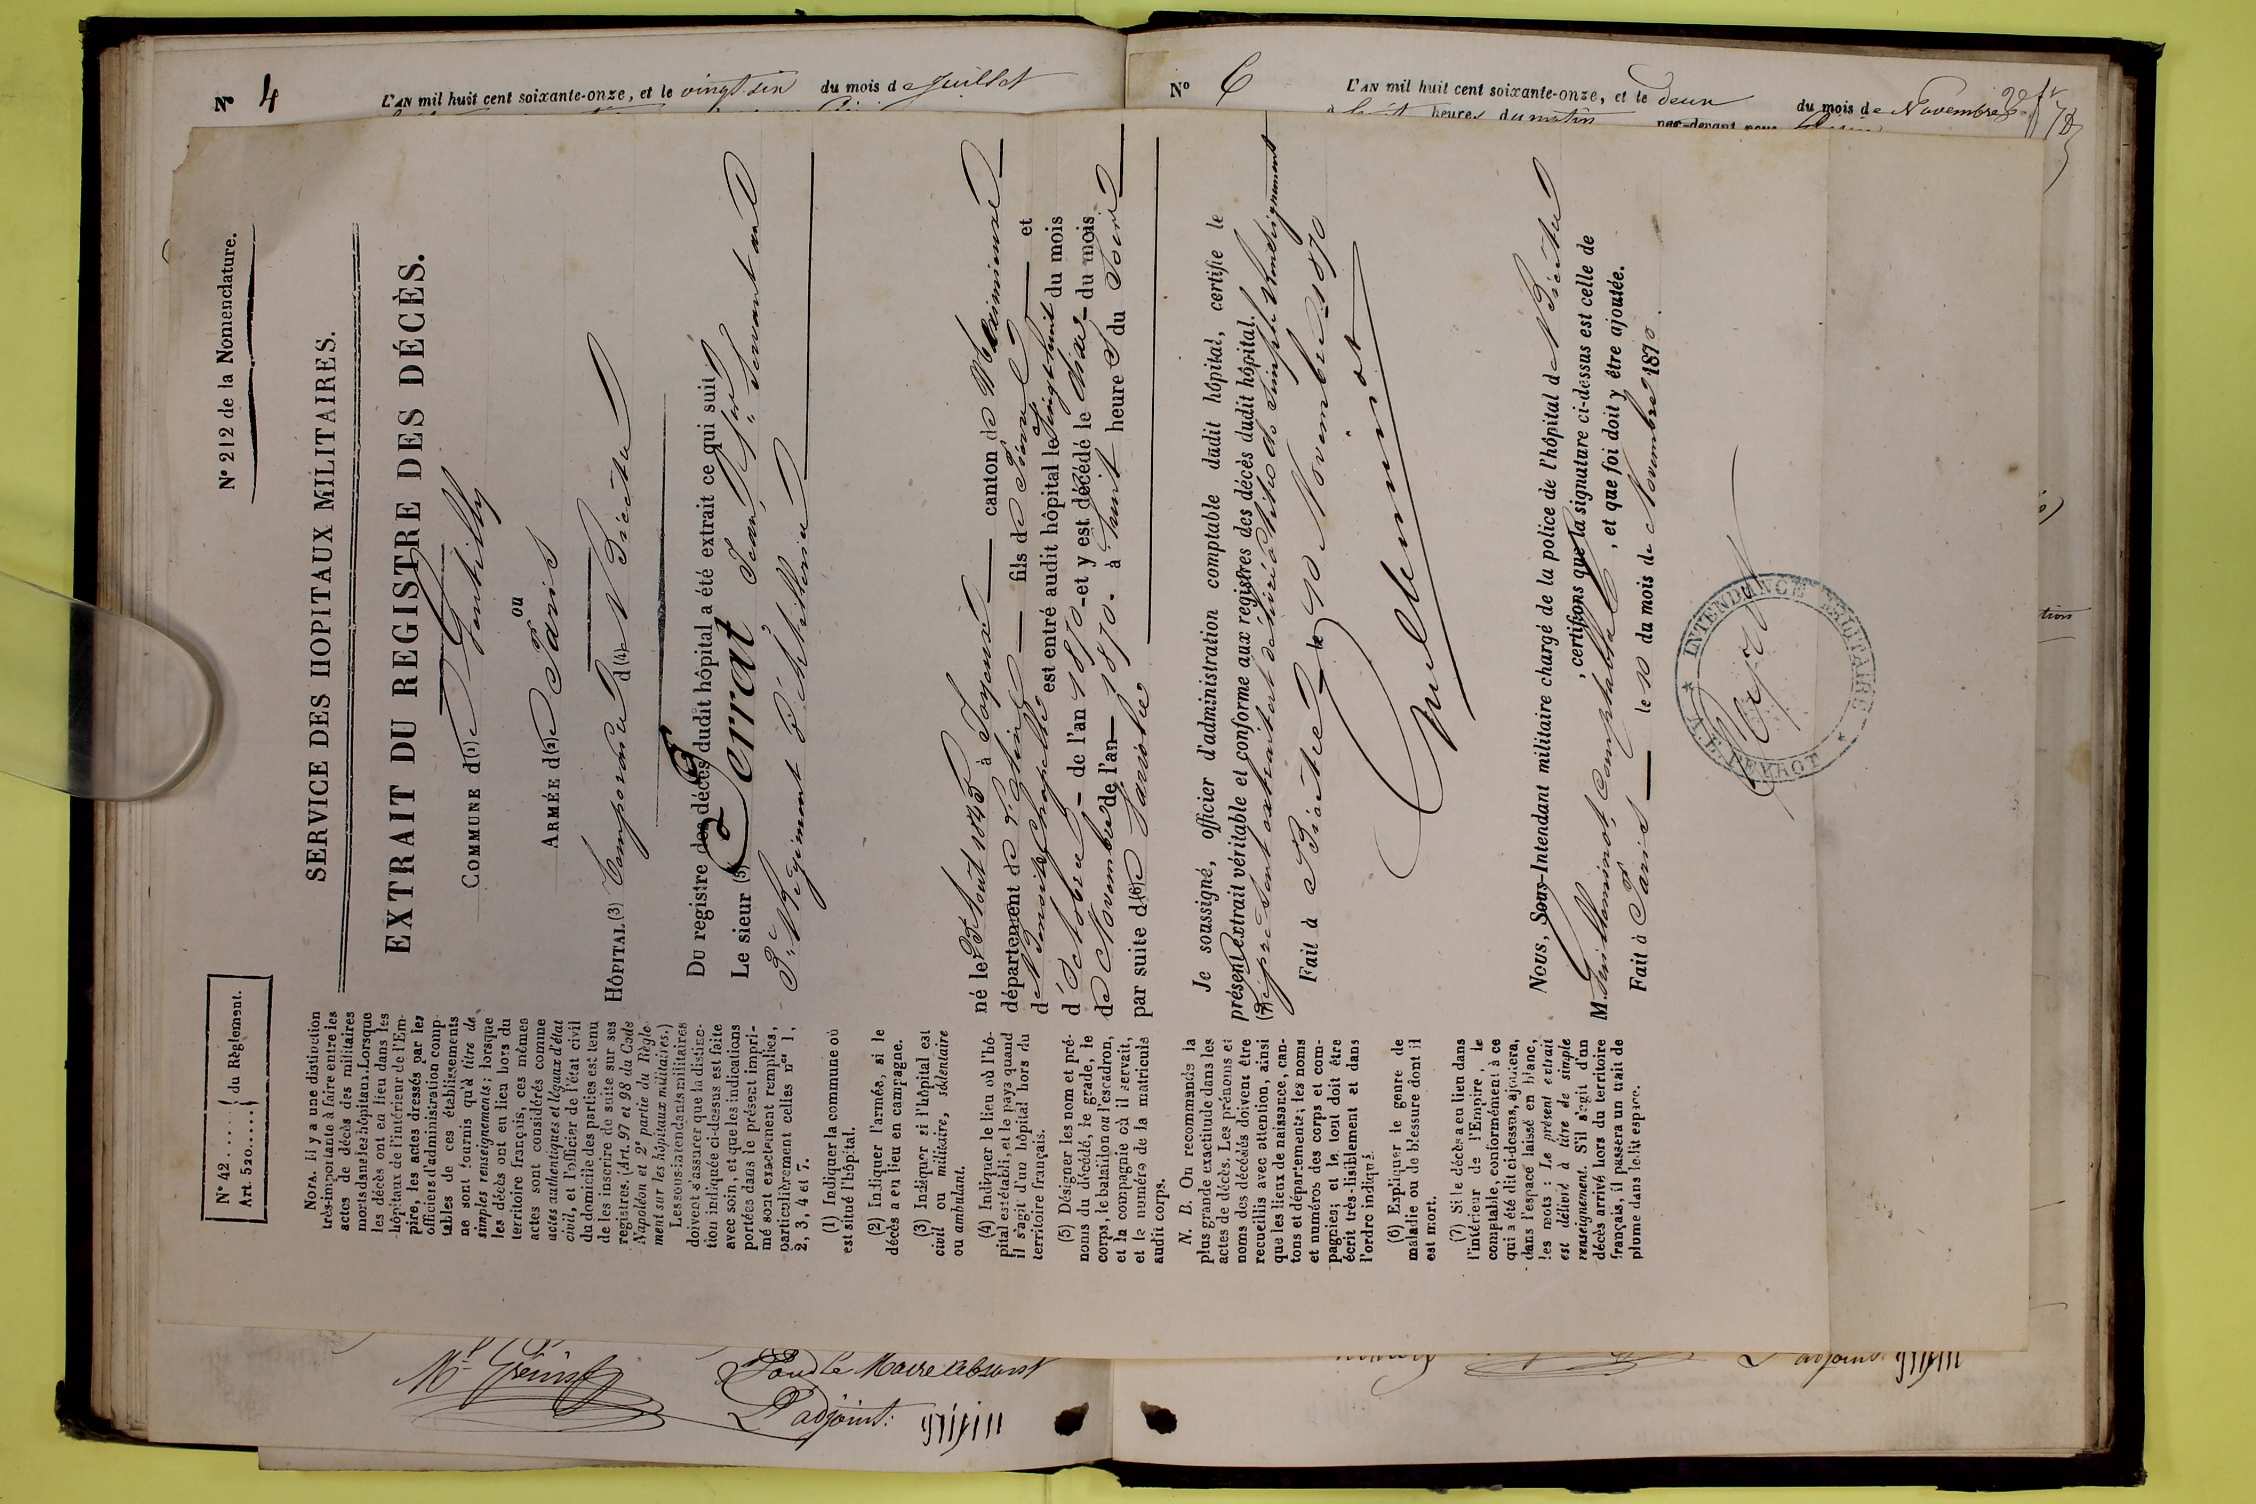 N° 4
L'AN mil huit cent soixante-onze, et le vingt six du mois de Juillet
N° 6
L'AN mil huit cent soixante-onze, et le deux du mois de Novembre
heures du matin par-devant nous
N° 42 .... } du Règlement.
Art. 520 ..... }
N° 212 de la Nomenclature.
SERVICE DES HOPITAUX MILITAIRES.
EXTRAIT DU REGISTRE DES DÉCÈS.
COMMUNE d(1)e Gentilly
ou
ARMÉE d(2)e Paris
HÔPITAL (3) Temporaire d(4)e Bicêtre
Du registre des décès dudit hôpital a été extrait ce qui suit
Le sieur (5) Perrat Jean, Servant au
3e Régiment d'Artillerie
né le 23 Aout 1845 à canton de Meximieux
département de l'Ain fils de Pierre et
de Benoite Chapelle est entré audit hôpital le vingt huit du mois
d'Octobre de l'an 1870 et y est décédé le dix du mois
de Novembre de l'an 1870. à huit heures du Soir
par suite d(6)e Variole
Je soussigné, officier d'administration comptable dudit hôpital, certifie le
présent extrait véritable et conforme aux registres des décès dudit hôpital.
(7) Le présent extrait est délivré à titre de simple renseignement
Fait à Bicêtre le 10 Novembre 1870
Guilleminot
Nous, Sous-Intendant militaire chargé de la police de l'hôpital de Bicêtre
, certifions que la signature ci-dessus est celle de
M. Guilleminot, Comptable , et que foi doit y être ajoutée.
Fait à Paris le 10 du mois de Novembre 1870.
INTENDANCE MILITAIRE
NOTA. Il y a une distinction
très-importante à faire entre les
actes de décès des militaires
morts dans les hôpitaux. Lorsque
les décès ont eu lieu dans les
hôpitaux de l'intérieur de l'Em-
pire, les actes dressés par les
officiers d'administration comp-
tables de ces établissements
ne sont fournis qu'à titre de
simples renseignements; lorsque
les décès ont eu lieu hors du
territoire français, ces mêmes
actes sont considérés comme
actes authentiques et légaux d'état
civil, et l'officier de l'état civil
du domicile des parties est tenu
de les inscrire de suite sur ses
registres. (Art. 97 et 98 du Code
Napoléon et 2e partie du Règle-
ment sur les hôpitaux militaires.)
Les sous-intendants militaires
doivent s'assurer que la distinc-
tion indiquée ci-dessus est faite
avec soin, et que les indications
portées dans le présent impri-
mé sont exactement remplies,
particulièrement celles nos 1,
2, 3, 4 et 7.
(1) Indiquer la commune où
est situé l'hôpital.
(2) Indiquer l'armée, si le
décès a eu lieu en campagne.
(3) Indiquer si l'hôpital est
civil ou militaire, sédentaire
ou ambulant.
(4) Indiquer le lieu où l'hô-
pital est établi, et le pays quand
il s'agit d'un hôpital hors du
territoire français.
(5) Désigner les nom et pré-
noms du décédé, le grade, le
corps, le bataillon ou l'escadron,
et la compagnie où il servait,
et le numéro de la matricule
audit corps.
N. B. On recommande la
plus grande exactitude dans les
actes de décès. Les prénoms et
noms des décédés doivent être
recueillis avec attention, ainsi
que les lieux de naissance, can-
tons et départements; les noms
et numéros des corps et com-
pagnies; et le tout doit être
écrit très-lisiblement et dans
l'ordre indiqué.
(6) Expliquer le genre de
maladie ou de blessure dont il
est mort.
(7) Si le décès a eu lieu dans
l'intérieur de l'Empire, le
comptable, conformément à ce
qui a été dit ci-dessus, ajoutera,
dans l'espace laissé en blanc,
les mots : Le présent extrait
est délivré à titre de simple
renseignement. S'il s'agit d'un
décès arrivé hors du territoire
français, il passera un trait de
plume dans ledit espace.
Pour le Maire absent
L'adjoint:
L'adjoint